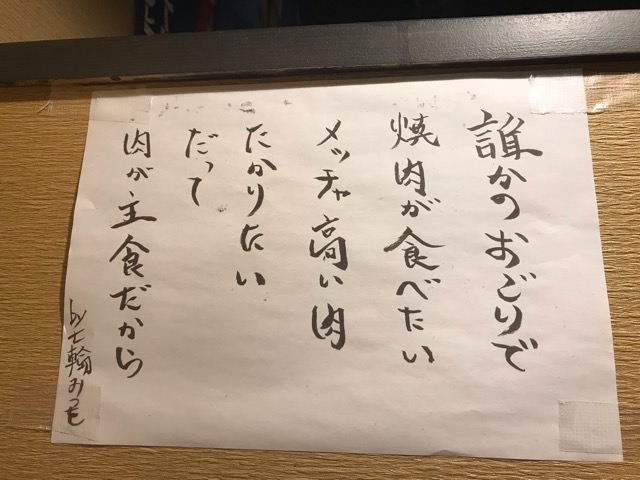 誰かのおごりで
焼肉が食べたい
メッチャ高い肉
たかりたい
だって
肉が主食だから
by七輪みつを